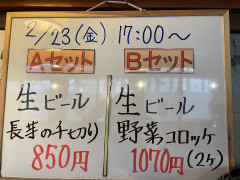 2/23(金) 17:00〜
Aセット Bセット
生ビール 生ビール
長芋の千切り 野菜コロッケ
850円 1070円(2ケ)